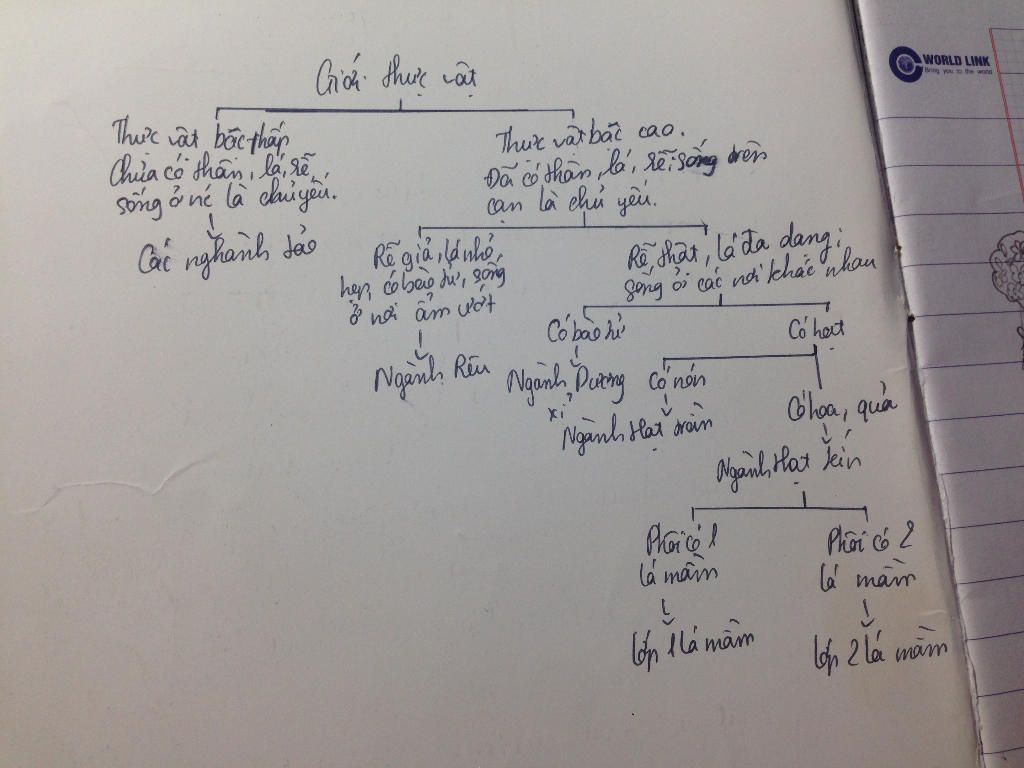 Giới thực vật
Thực vật bậc thấp
Chưa có thân, lá, rễ
sống ở nc là chủ yếu.
Các nghành tảo
Thực vật bậc cao.
Đã có thân, lá, rễ; sống trên
cạn là chủ yếu.
Rễ giả, lá nhỏ
hẹp, có bào tử, sống
ở nơi ẩm ướt
Ngành Rêu
Rễ thật, lá đa dạng;
sống ở các nơi khác nhau
Có bào tử
Ngành Dương
xỉ
Có hạt
Có nón
Ngành Hạt trần
Có hoa, quả
Ngành Hạt kín
Phôi có 1
lá mầm
lớp 1 lá mầm
Phôi có 2
lá mầm
lớp 2 lá mầm
WORLD LINK
Bring you to the world